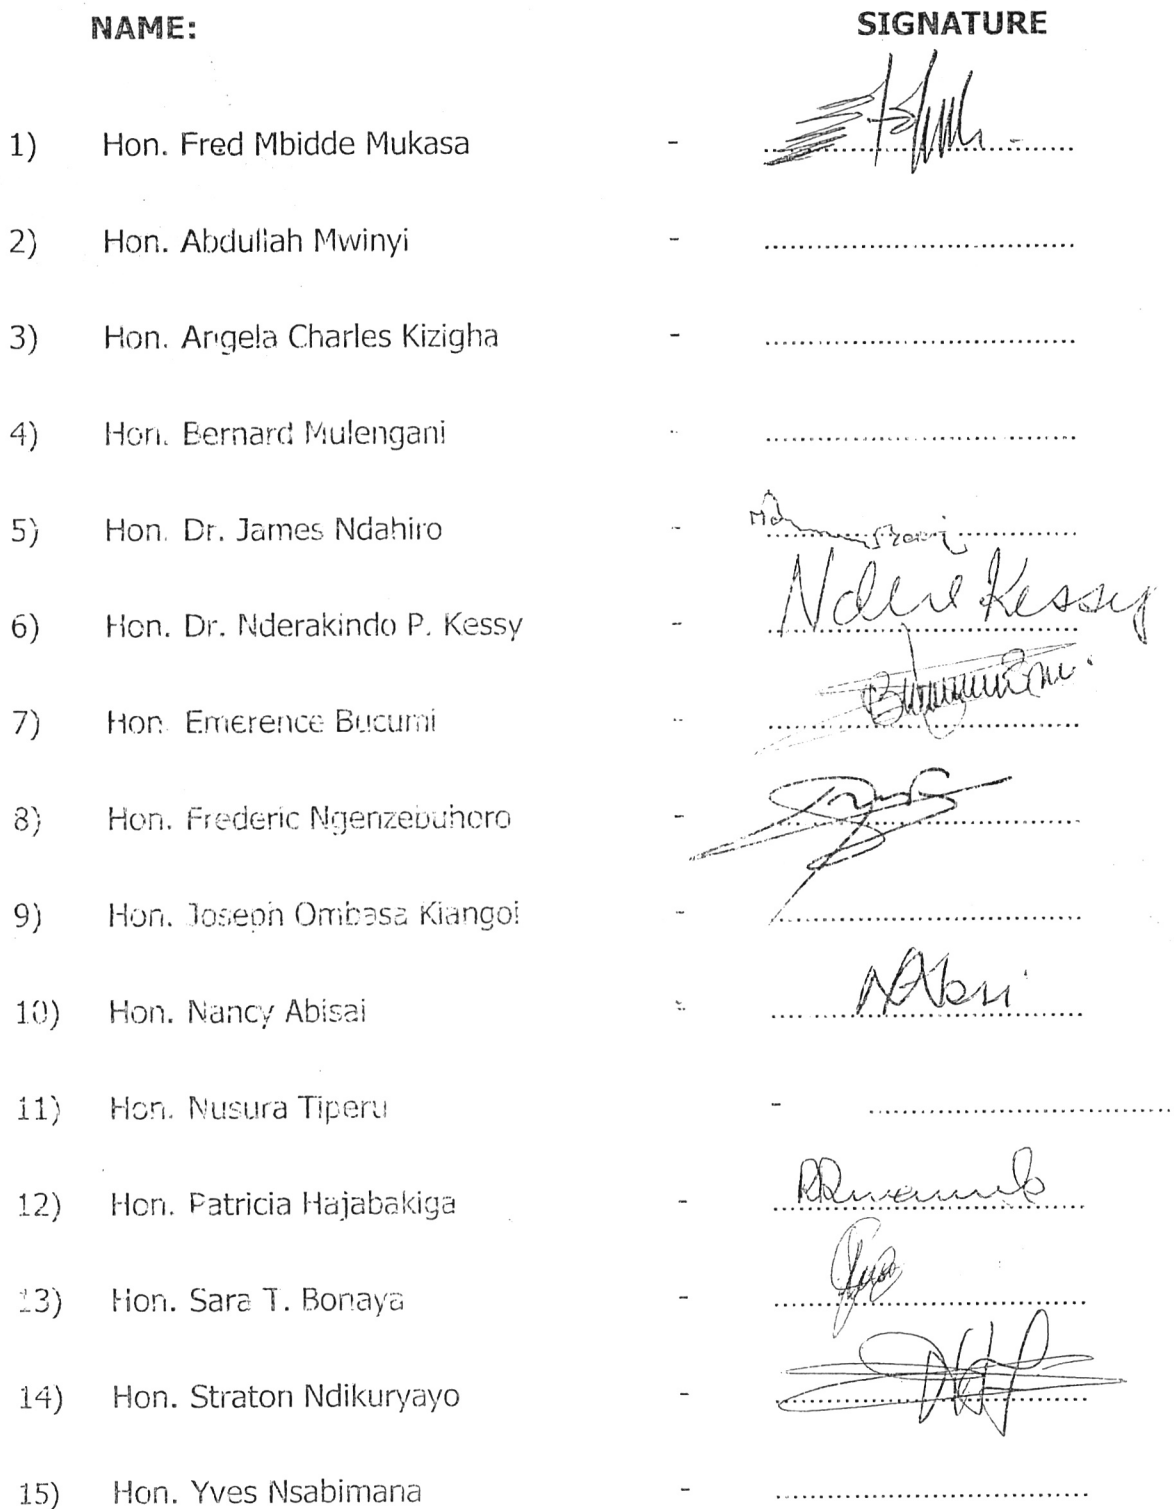 NAME: SIGNATURE
1) Hon. Fred Mbidde Mukasa -
2) Hon. Abdullah Mwinyi -
3) Hon. Angela Charles Kizigha -
4) Hon. Bernard Mulengani -
5) Hon. Dr. James Ndahiro -
6) Hon. Dr. Nderakindo P. Kessy - Ndere Kessy
7) Hon. Emerence Bucumi -
8) Hon. Frederic Ngenzebuhoro -
9) Hon. Joseph Ombasa Kiangoi -
10) Hon. Nancy Abisai -
11) Hon. Nusura Tiperu -
12) Hon. Patricia Hajabakiga -
13) Hon. Sara T. Bonaya -
14) Hon. Straton Ndikuryayo -
15) Hon. Yves Nsabimana -